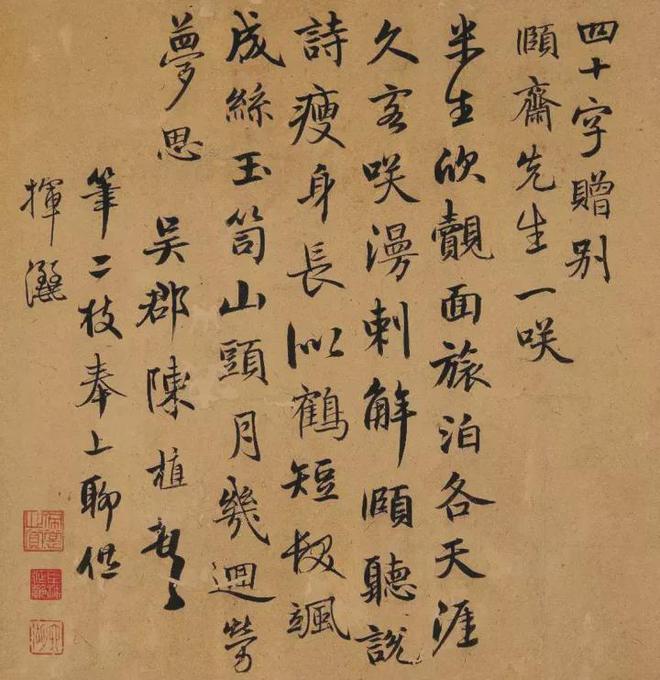 四十字贈别
頤齋先生一咲
生欣覿面旅泊各天涯
久客咲漫刺解頤聽說
詩瘦身長似鶴短髮颯
成絲玉笥山頭月幾迴勞
夢思 吳郡陳植
筆二枝奉上聊供
揮灑